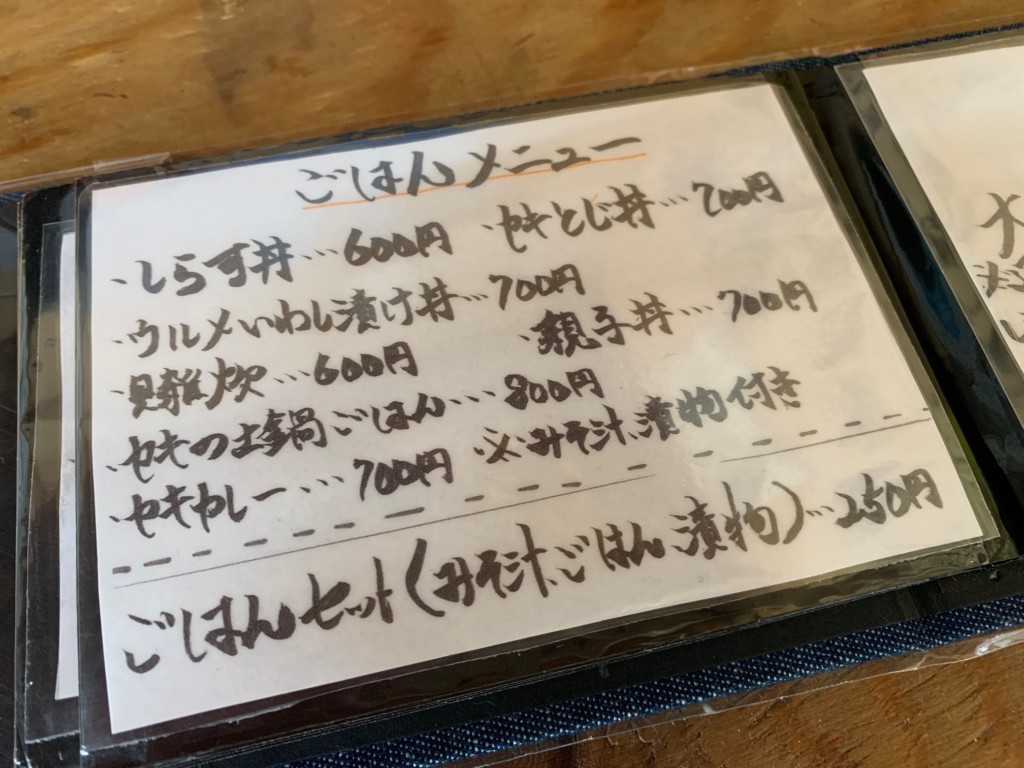 ごはんメニュー
・しらす丼…600円 ・セキとじ丼…700円
・ウルメいわし漬け丼…700円
・貝雑炊…600円 ・親子丼…700円
・セキの土鍋ごはん…800円
・セキカレー…700円 ※みそ汁、漬物付き
ごはんセット(みそ汁、ごはん、漬物)…250円